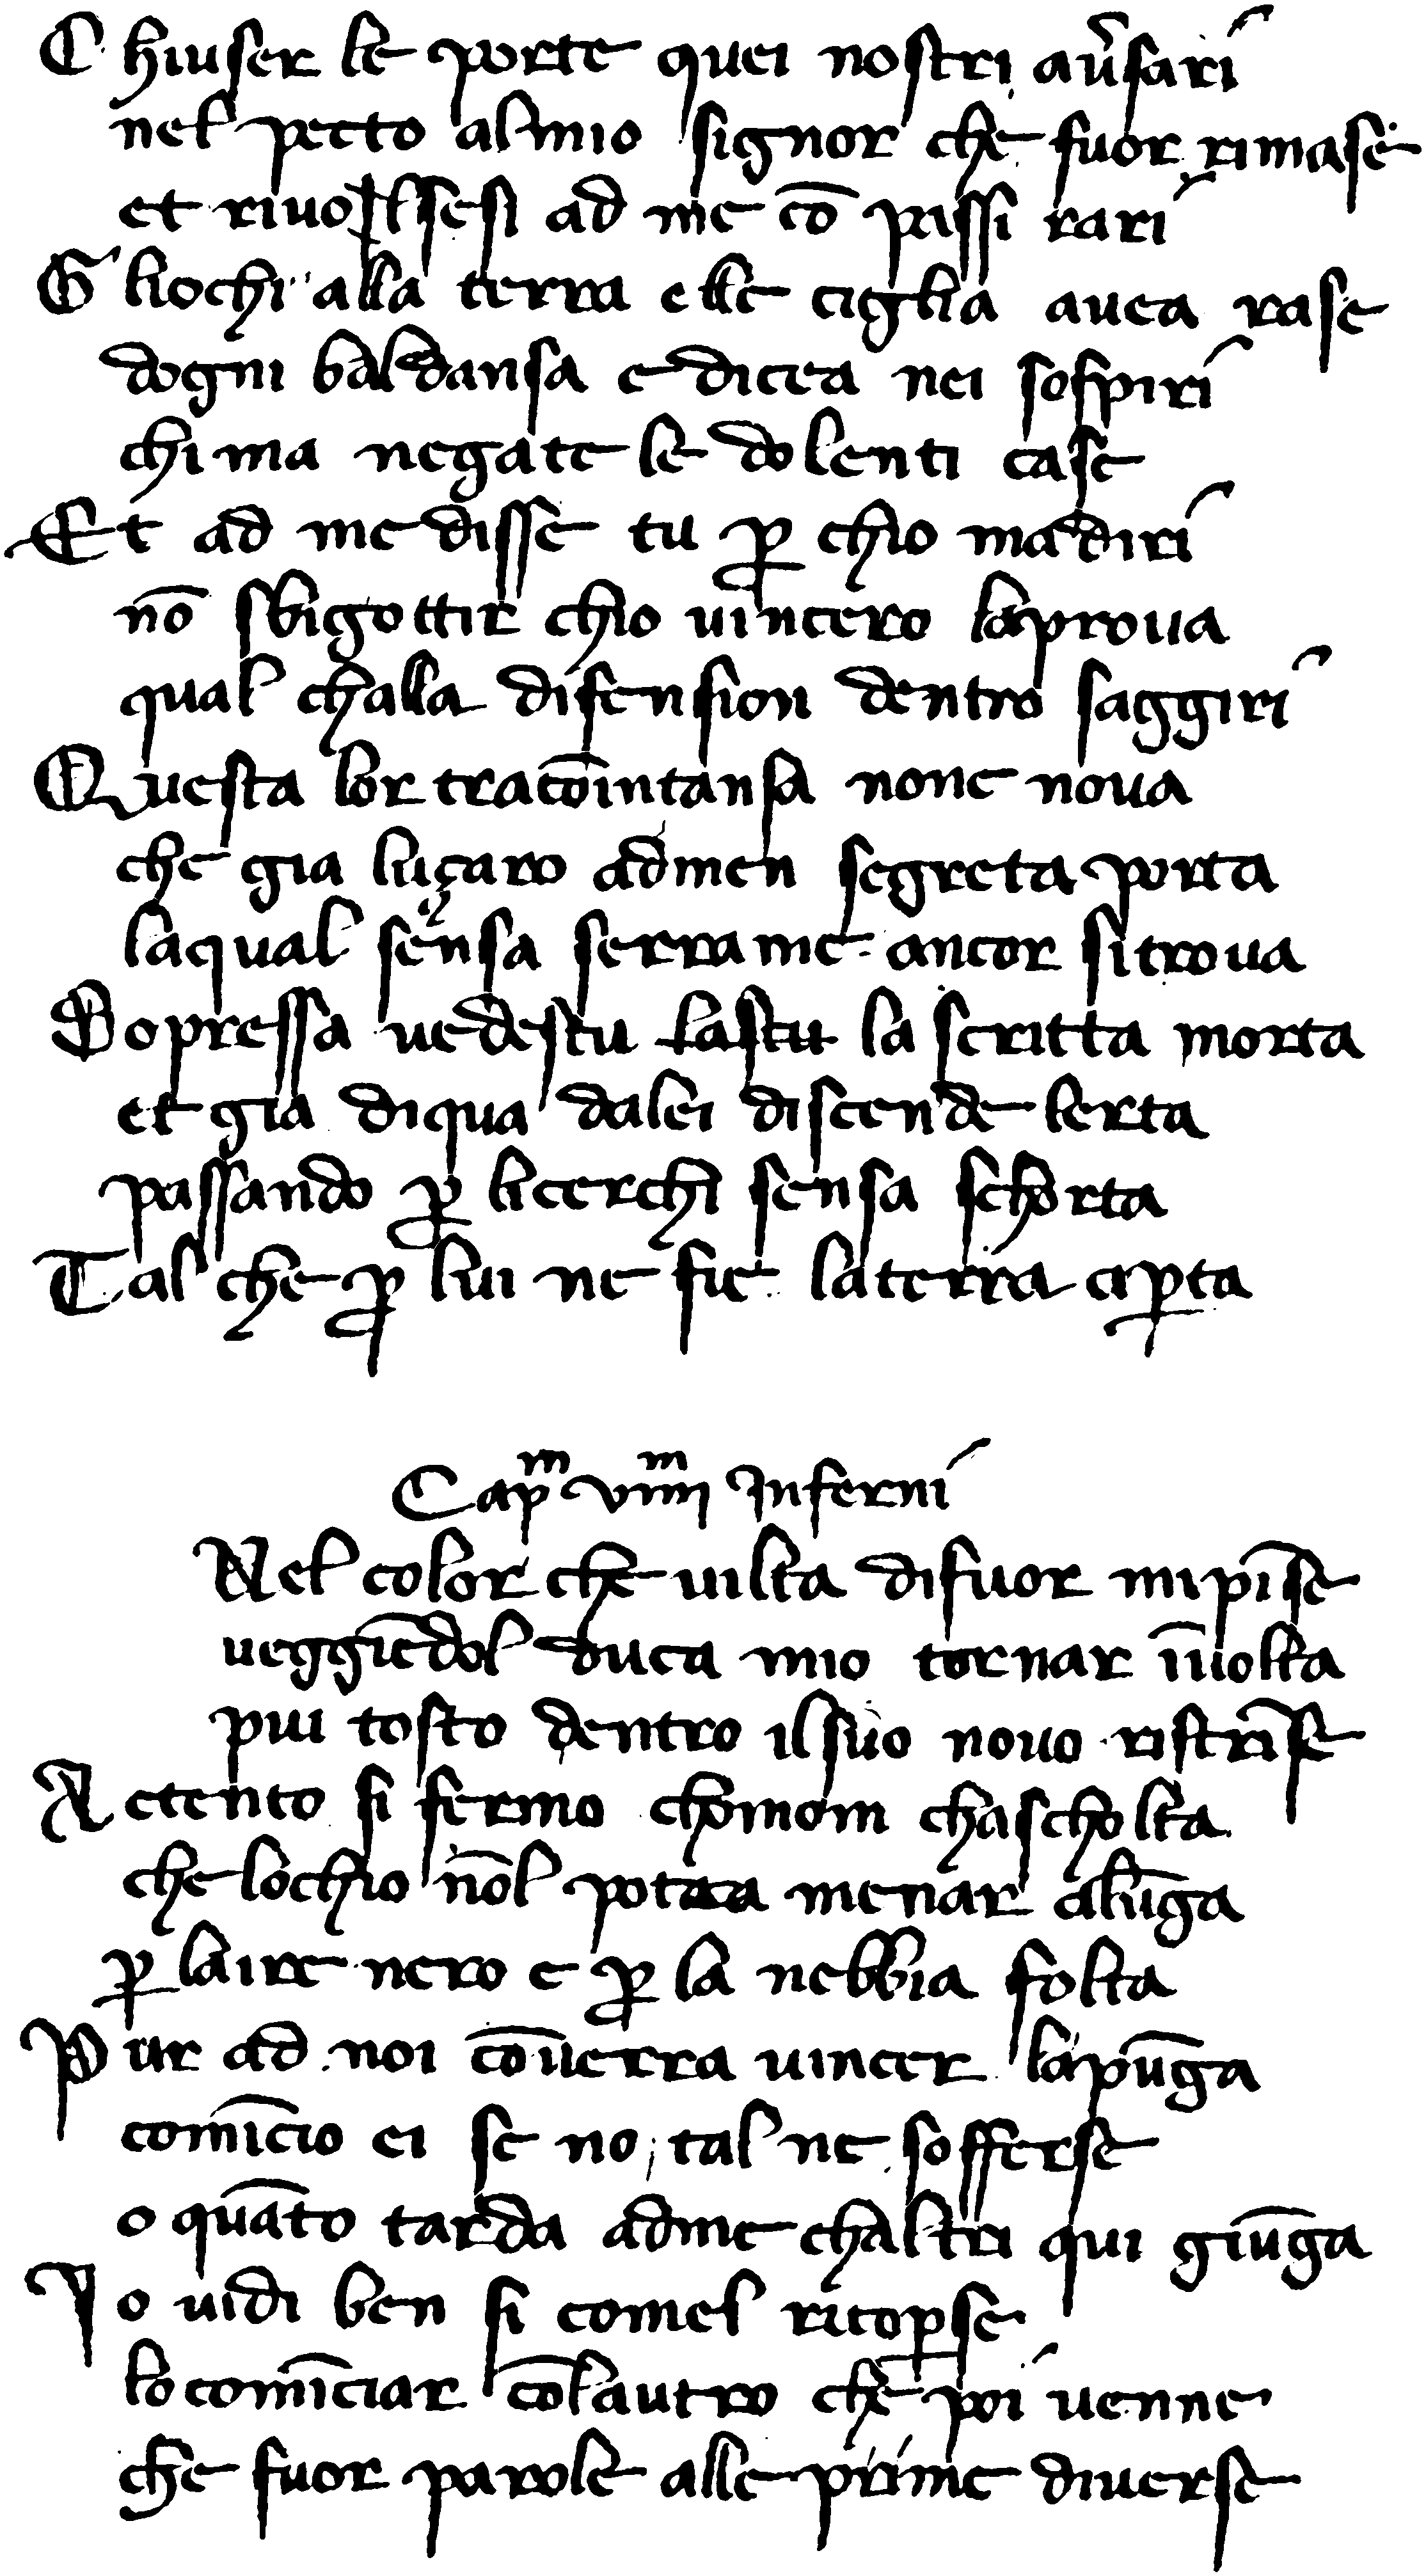 Chiuser le porte quei nostri au̅sari
nel pecto almio signor che fuor rimase
et riuolsesi ad me co̅ passi rari
Gliochi alla terra elle ciglia auea rase
dogni baldansa e dicea nei sospiri
chi ma negate le dolenti case
Et ad me disse tu ꝑ chio madiri
no̅ sbigottir chio uincero laproua
qual challa difension dentro saggiri
Questa lor traco̅intansa none noua
che gia luçaro admen segreta porta
laqual sensa serrame ancor sitroua
Sopressa uedestu lastu la scritta morta
et gia diqua dalei discende lerta
passando ꝑ licerchi sensa schorta
Tal che ꝑ lui ne fie laterra aꝑta
Capᵐ viiiiᵐ Inferni
Nel color che uilta difuor mipi̅se
ueggie̅dol duca mio tornar i̅uolta
piu tosto dentro ilsuo nouo ristri̅se
Actento si fermo chomom chascholta
che lochio no̅l potea menar alu̅ga
ꝑ laire nero e ꝑ la nebbia folta
Pur ad noi co̅uerra uincer lapu̅ga
comi̅cio ei se no tal ne sofferse
o qua̅to tarda adme chaltri qui giu̅ga
Io uidi ben si comel ricoꝑse
locomi̅ciar co̅lautro che poi uenne
che fuor parole alle prime diuerse